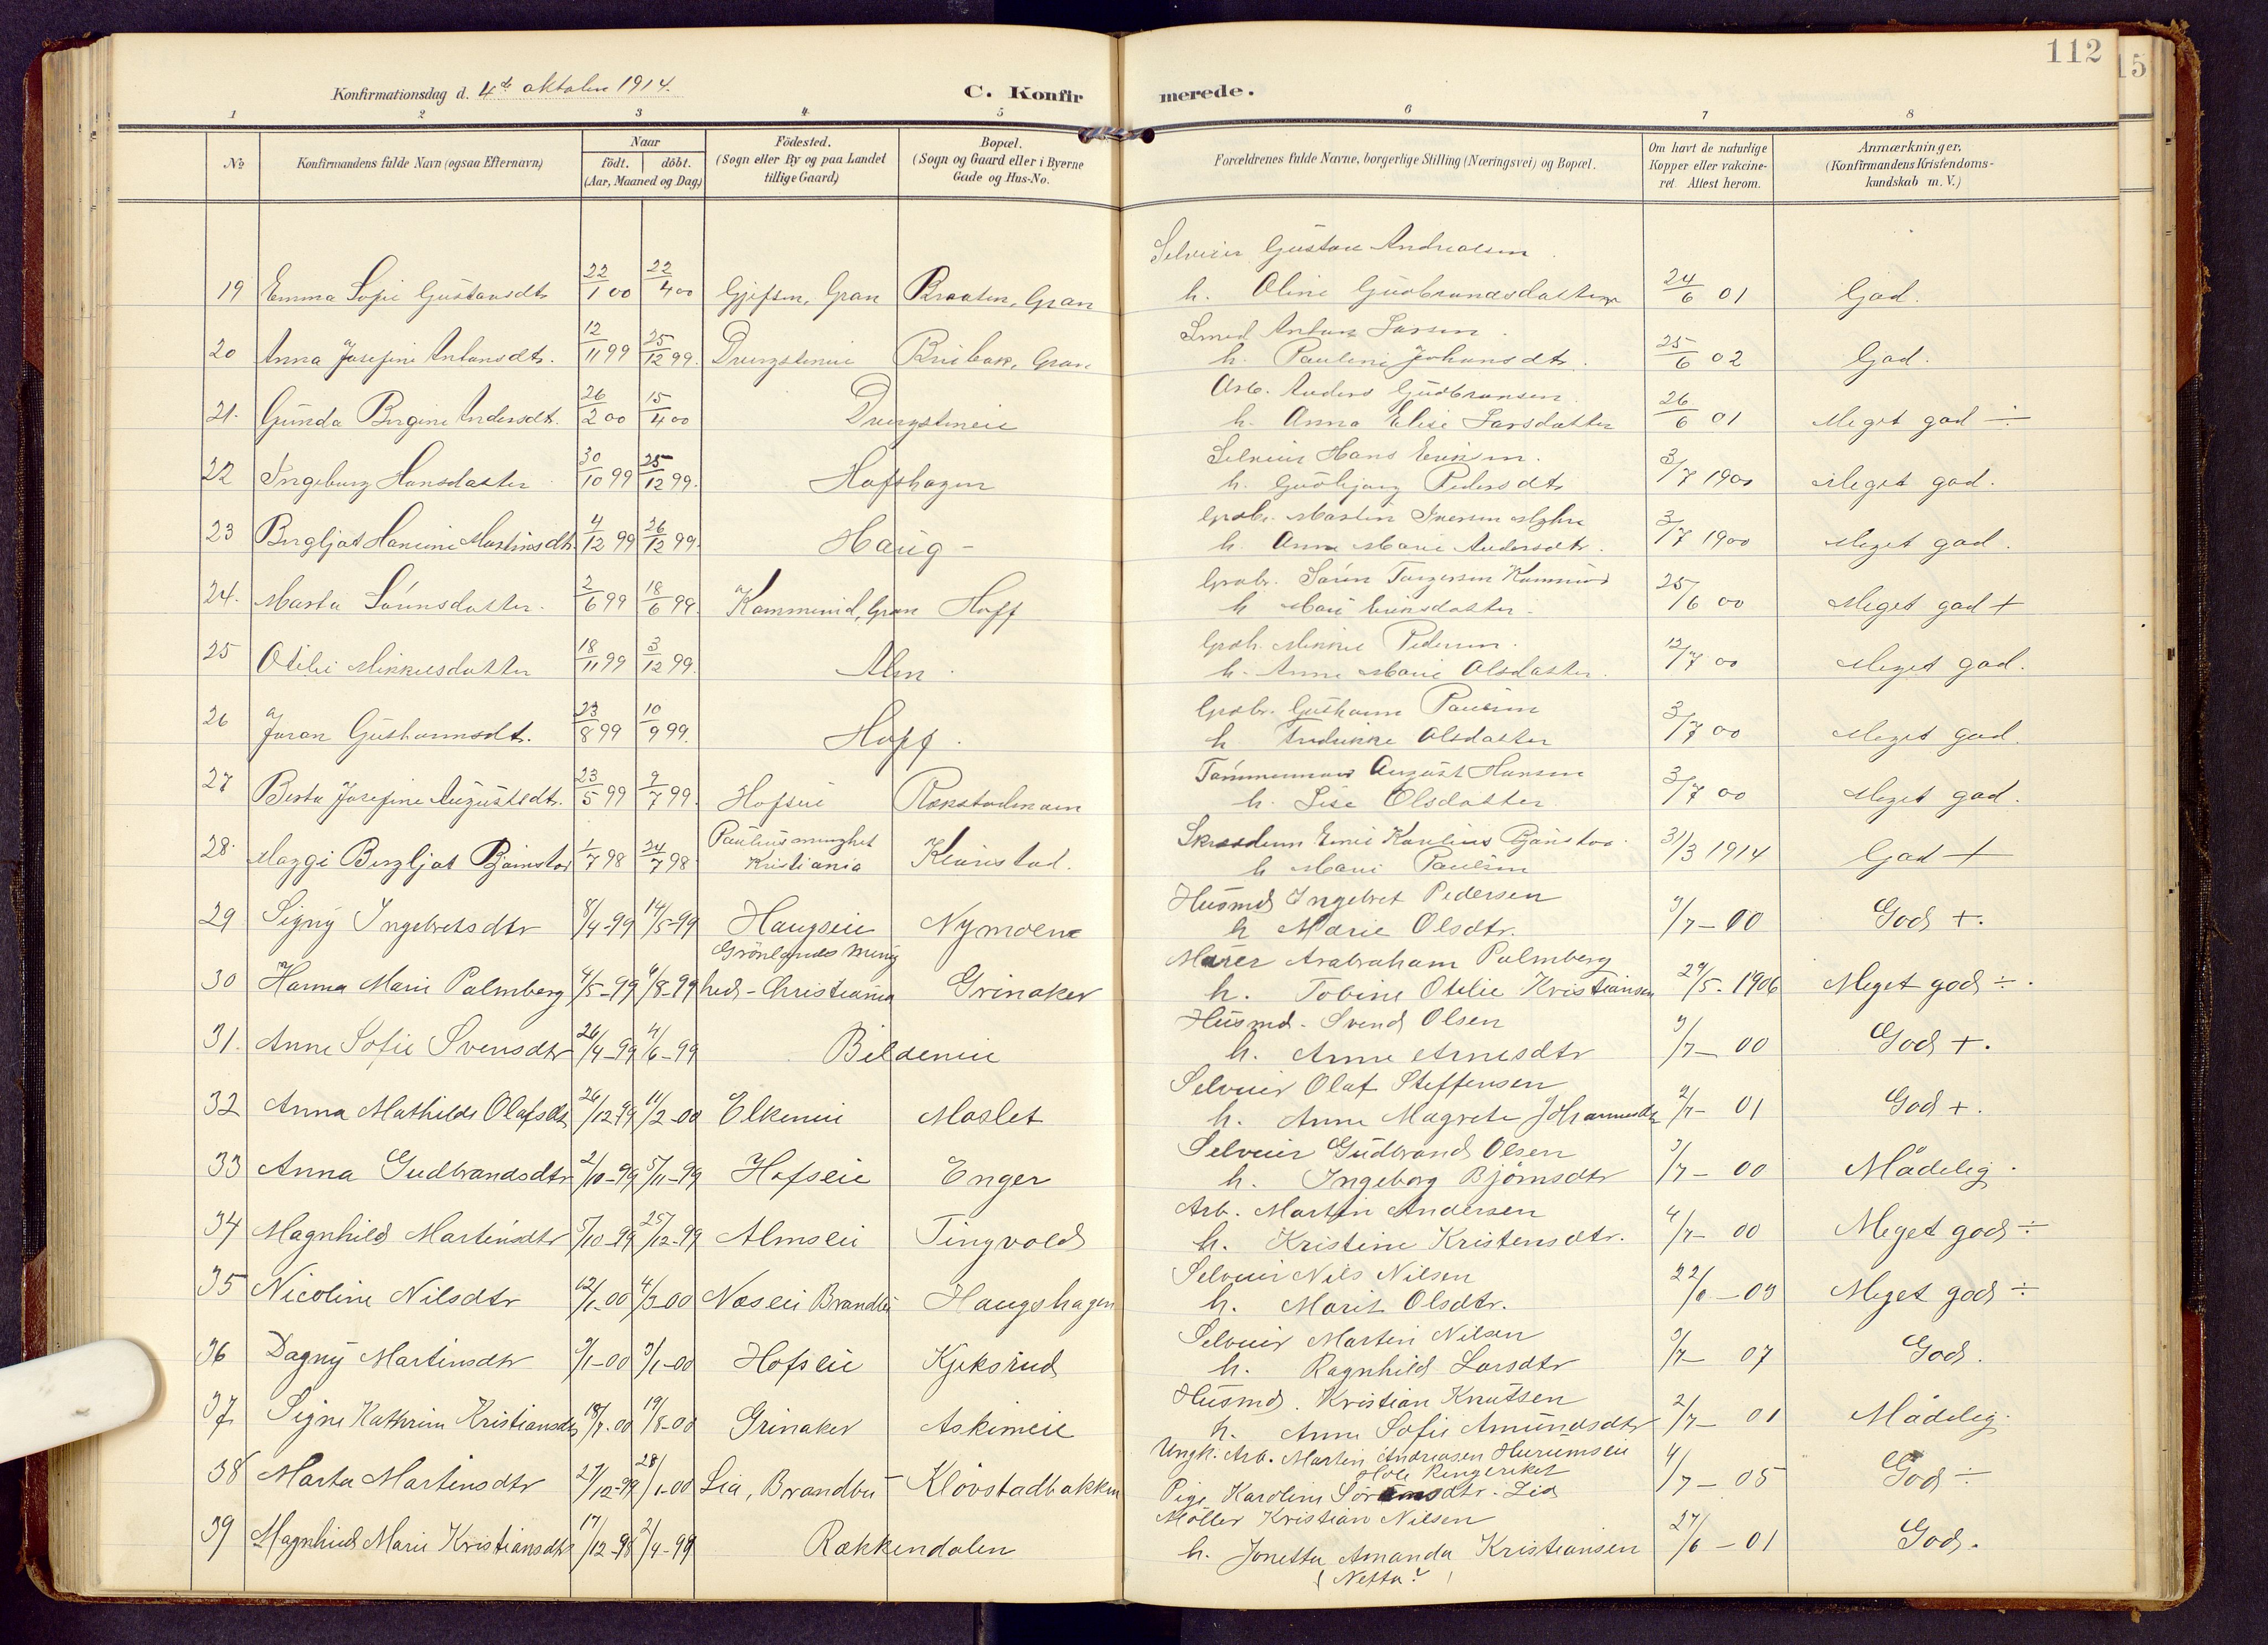 112
15
Konfirmationsdag d. 4de oktober 1914.
C. Konfir merede.
1 2 3 4 5 6 7 8
No
Konfirmandens fulde Navn (ogsaa Efternavn)
Naar
födt. döbt.
(Aar, Maaned og Dag.)
Födested.
(Sogn eller By og paa Landet
tillige Gaard)
Bopæl.
(Sogn og Gaard eller i Byerne
Gade og Hus-No.
Forældrenes fulde Navne, borgerlige Stilling (Næringsvei) og Bopæl.
Om havt de naturlige
Kopper eller vakcine-
ret. Attest herom.
Anmærkninger.
(Konfirmandens Kristendoms-
kundskab m. V.)
Selveier Gustav Andreasen
19 Emma Sofie Gustavsdtr 22/1 00 22/4 00 Gjefsen, Gran Braaten, Gran h. Oline Gudbrandsdatter 24/6 01 God.
Smed Anton Larsen.
20 Anna Josefine Antonsdtr. 12/11 99 25/12 99. Dvergsteneie Gran h. Pauline Johansdtr. 25/6 02 God.
Arb. Anders Gudbransen
21. Gunda Bergine Andersdtr. 26/2 00 15/4 00 Dvergsteneie h. Anna Elise Larsdatter 26/6 01 Meget god ÷
Selveier Hans Eriksen.
22 Ingeborg Hansdatter 30/10 99 25/12 99. Hofshagen h. Gudbjørg Pedersdtr 3/7 1900 Meget god.
Grdbr. Martin Iversen Myhre
23 Bergljot Hanine Martinsdtr. 4/12 99 26/12 99. Haug - h. Anne Marie Andersdtr. 3/7 1900 Meget god.
Grdbr. Sören Torgersen Kammerud
24. Marta Sörensdatter. 2/6 99 18/6 99. Kammerud, Gran Hoff h Mari Eriksdatter 25/6 00 Meget god +
Grdb. Mikkel Pedersen.
25 Otilie Mikkelsdatter 18/11 99 3/12 99. Alm. h. Anne Marie Olsdatter. 12/7 00 Meget god.
Grdbr. Guthorm Paulsen
26 Joran Guthormsdtr. 23/8 99 10/9 99. Hoff. h Andrikke Olsdatter 3/7 00 Meget god.
Tömmermand August Hansen
27 Berta Josefine Augustsdtr. 23/5 99 9/7 99. Hofseie h. Lise Olsdatter 3/7 00 Meget god.
Paulus menighet
Skrædderm Emil Karelius Bjönstad.
28. Maggi Bergljot 1/7 98 24/7 98 Kristiania Klævstad. h Mari Paulsen 31/3 1914 God +
Husmd Ingebret Pedersen
29 Signy Ingebretsdtr 8/4-99 14/5-99 Haugseie Nymoen h Marie Olsdtr. 3/7-00 God +.
Grönlands menig
Murer Arabraham Palmberg
30 Hanna Marie Palmberg 4/5-99 6/8-99 hed - Christiania Grinaker h. Tobine Otilie Kristiansen 29/5. 1906 Meget god ÷.
Husmd. Svend Olsen
31. Anne Sofie Svensdtr 26/4-99 4/6-99 Bildeneie h. Anne Arnesdtr 3/7- 00 God +.
Selveier Olaf Steffensen
32 Anna Mathilde Olafsdtr 26/12-99 11/2-00 Elkeneie Moslet h. Anne Magrete Johannesdtr 2/7- 01 God +.
Selveier Gudbrand Olsen
33 Anna Gudbrandsdtr 2/10-99 5/11-99 Hofseie Enger h. Ingeborg Björnsdtr 3/7- 00 Mådelig.
Arb. Martin Andersen
34 Magnhild Martinsdtr 5/10-99 25/12-99 Almseie Tingvold h. Kristine Kristensdtr. 4/7- 00 Meget god ÷
Selveier Nils Nilsen
35 Nicoline Nilsdtr 12/1-00 4/3-00 Næseie Brandbu Haugshagen h. Marit Olsdtr. 22/6 -03 Meget god ÷
Selveier Martin Nilsen
36 Dagny Martinsdtr Hofseie Kjeksrud h. Ragnhild Larsdtr 3/7- 07 God.
Husmd. Kristian Knutsen
37. Signe Kathrine Kristiansdtr 18/7-00 19/8-00 Grinaker Askimeie h. Anne Sofie Amundsdtr 2/7- 01 Mådelig.
Ungk. Arb. Martin Andreasen Hurumseie
Hole Ringeriket
38 Marta Martinsdtr 27/12-99 28/1-00 Lia, Brandbu Klövstadbakken Pige Karoline Sörensdtr. Lia 4/7-05 God ÷
Möller Kristian Nilsen
39 Magnhild Marie Kristiansdtr 17/12-98 2/4-99 Rækkendalen h. Jonetta Amanda Kristiansen 27/6 -01 God.
(Netta?)